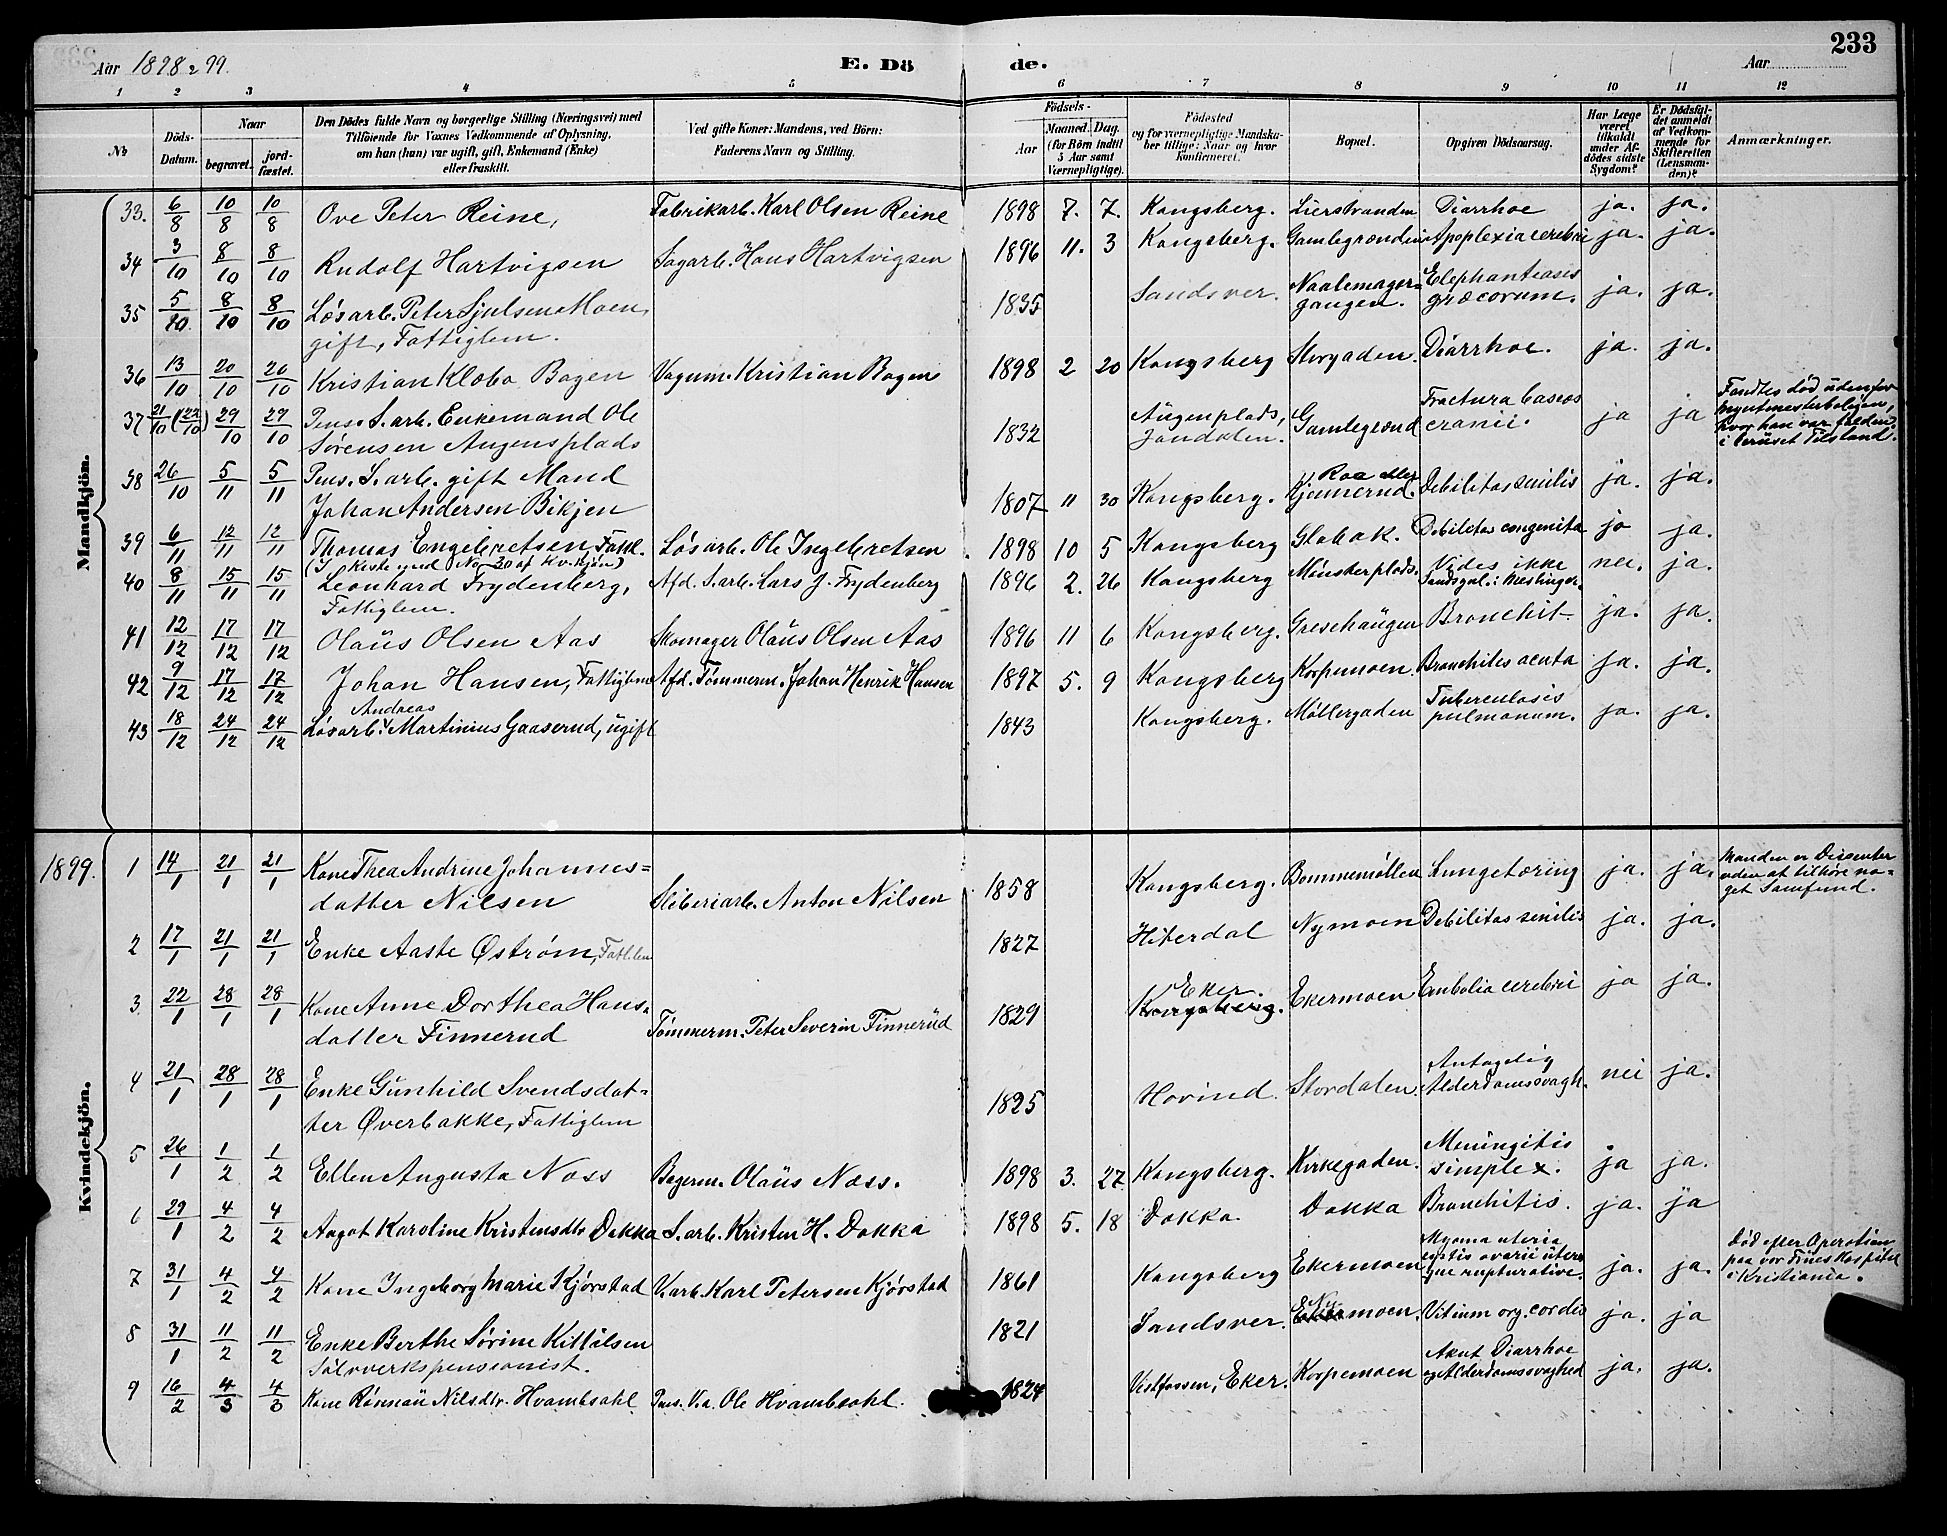 233
Aar 1898 & 99. E. Dö de. Aar
1 2 3 4 5 6 7 8 9 10 11 12
No Döds-Datum. Naar begravet. jordfæstet. Den Dödes fulde Navn og borgerlige Stilling (Næringsvei) med Tilföiende for Voxnes Vedkommende af Oplysning, om han (hun) var ugift, gift, Enkemand (Enke) eller fraskilt. Ved gifte Koner: Mandens, ved Börn: Faderens Navn og Stilling. Födsels- Aar Maaned. Dag. (for Börn indtil 5 Aar samt Værnepligtige). Födested og for værnepligtige Mandskaber tillige: Naar og hvor konfirmeret. Bopæl. Opgiven Dödsaarsag. Har Læge været tilkaldt under Afdödes sidste Sygdom? Er Dödsfaldet anmeldt af Vedkommende for Skifteretten (Lensmanden)? Anmærkninger.
Mandkjön.
33. 6/8 10/8 10/8 Ove Peter Reine, Fabrikarb. Karl Olsen Reine 1898 7. 7. Kongsberg. Lierstranden Diarrhoe ja. ja.
34 3/10 8/10 8/10 Rudolf Hartvigsen Sagarb. Hans Hartvigsen 1896 11. 3 Kongsberg. Gamlegrænden Apoplexia cerebri ja. ja.
35 5/10 8/10 8/10 Løsarb. Peter Sjulsen Moen, 1835 Sandsver. Naalemager= Elephantiasis ja. ja.
gift, Fattiglem. gangen. græcorum.
36 13/10 20/10 20/10 Kristian Klobo Bogen Vognm. Kristian Bogen 1898 2 20 Kongsberg Storgaden. Diarrhoe. ja. ja.
37 21/10 (22/10) 29/10 29/10 Pens. S. arb. Enkemand Ole 1832 Augenplads, Gamlegrænd Fractura baseos ja ja Fandtes død udenfor
Sørensen Augensplads Jondalen. cranii. Myntmesterboligen,
hvor han var falden
i beruset Tilstand.
38 26/10 5/11 5/11 Pens. S. arb. gift Mand 1807 11 30 Kongsberg. Debilitas senilis ja. ja.
Johan Andersen Bikjen
39 6/11 12/11 12/11 Thomas Engebretsen, Fattl. Løsarb. Ole Ingebretsen 1898 10 5 Kongsberg Glabak. Debilitas congenita ja ja.
(I Kiste med No 30 af Kv. kjøn)
40 8/11 15/11 15/11 Leonhard Frydenberg, Afd. S. arb. Lars J. Frydenberg 1896 2. 26 Kongsberg Mønsterplads. Vides ikke nei. ja.
Fattiglem.
41 12/12 17/12 17/12 Olaüs Olsen Aas Skomager Olaüs Olsen Aas 1896 11 6 Kongsberg. Bronchit. ja. ja
42 9/12 17/12 17/12 Johan Hansen, Fattiglem Afd. Tømmerm. Johan Henrik Hansen 1897 5. 9 Kongsberg Korpemoen. Bronchites acuta ja. ja.
43 18/12 24/12 24/12 Løsarb. Andreas Martinius Gaaserud, ugift 1843 Kongsberg. Møllergaden Tuberculosis ja. ja.
pulmonum.
1899.
Kvindekjön.
1 14/1 21/1 21/1 Kone Thea Andrine Johannes= Sliberiarb. Anton Nilsen 1858 Kongsberg. Bommemøllen Lungetæring ja. ja. Manden er Dissenter
datter Nilsen uden at tilhøre no-
get Samfund.
2 17/1 21/1 21/1 Enke Aaste Østrøm, Fattlem 1827 Hiterdal Nymoen Debilitas senilis ja. ja.
3. 22/1 28/1 28/1 Kone Anne Dorthea Hans= Tømmerm. Peter Severin Finnerüd 1829 Eker. Kongsberg. Ekermoen Embolia cerebri ja ja.
datter Finnerud
4 21/1 28/1 28/1 Enke Gunhild Svendsdat- 1825 Hovind. Stordalen. Antagelig nei ja.
ter Øverbakke, Fattiglem Alderdomssvagh.
5 26/1 1/2 1/2 Ellen Augusta Næss Bagerm. Olaüs Næss. 1898 3. 27 Kongsberg. Kirkegaden. Meningitis ja ja.
simplex.
6 29/1 4/2 4/2 Aagot Karoline Kristensdtr Dokka S. arb. Kristen H. Dokka 1898 5. 18 Dokka. Dokka Bronchitis. ja. ja
7 31/1 4/2 4/2 Kone Ingeborg Marie Kjørstad V. arb. Karl Petersen Kjørstad 1861 Kongsberg Ekermoen ja. ja. Død efter Operation
paa vor Frues Hospital
i Kristiania.
8 31/1 11/2 11/2 Enke Berthe Sørine Kittilsen 1821 Sandsver. Nymoen. Vitium org. cordis ja. ja
Sølvverkspensionist.
9 16/2 4/3 4/3 Kone Rønnaü Nilsdtr. Hvambsahl Pens. V. a. Ole Hvambsahl. 1824 Vestfossen, Eker. Korpemoen Akut Diarrhoe ja. ja.
og Alderdomssvaghed